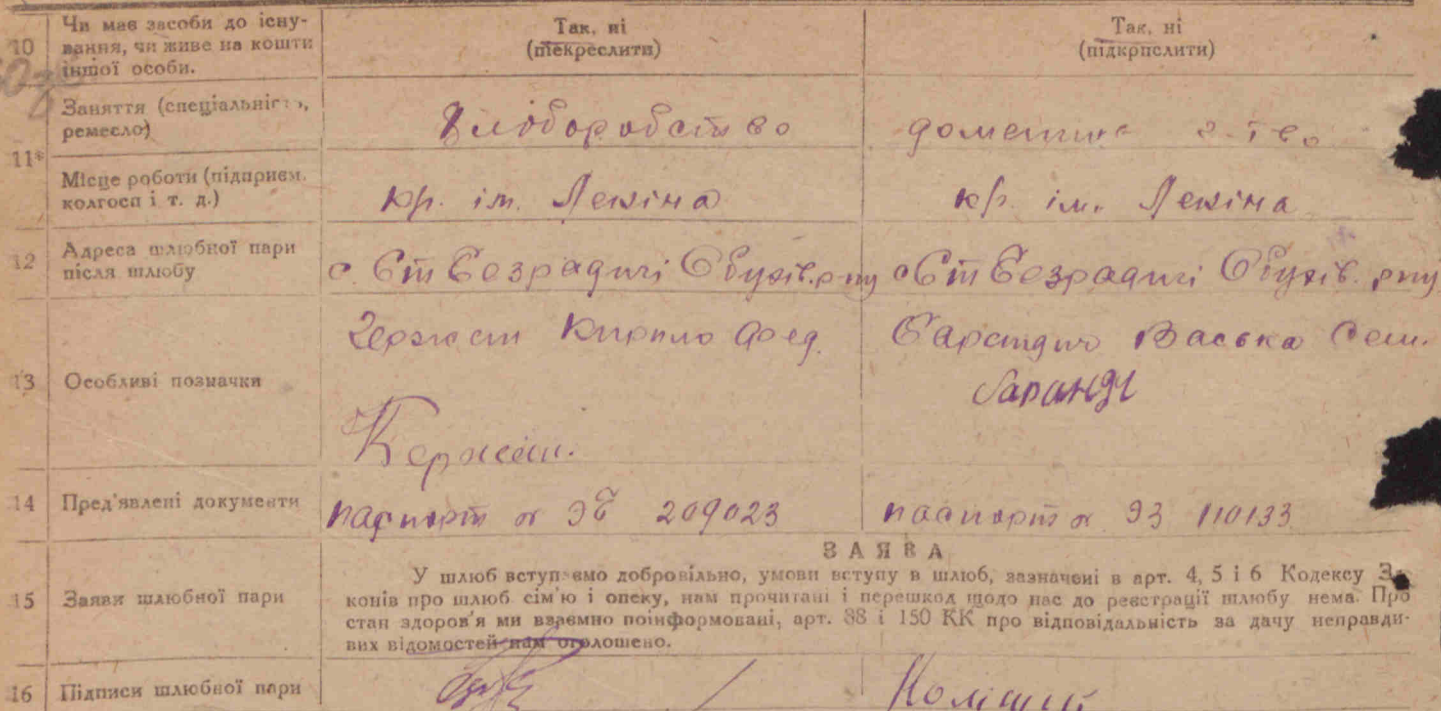 10 Чи має засоби до існування, чи живе на кошти іншої особи.
Так, ні
(підкреслити)
Так, ні
(підкрпслити)
11*
Заняття (спеціальність, ремесло)
Хліборобство
домашнє г-тво
Місце роботи (підприєм. колгосп і т. д.)
кр. ім. Леніна
кр. ім. Леніна
12 Адреса шлюбної пари після шлюбу
с. Ст Безрадичі Обухів. р-ну
с Ст Безрадичі Обухів. р-ну
13 Особливі позначки
Кирило Фед.
Васька Сем.
14 Пред'явлені документи
паспорт № ЭБ 209023
паспорт № 93 110133
15 Заяви шлюбної пари
ЗАЯВА
У шлюб вступаємо добровільно, умови вступу в шлюб, зазначені в арт. 4, 5 і 6 Кодексу За-
конів про шлюб сім'ю і опеку, нам прочитані і перешкод щодо нас до реєстрації шлюбу нема. Про
стан здоров'я ми взаємно поінформовані, арт. 88 і 150 КК про відповідальність за дачу неправди-
вих відомостей нам оголошено.
16 Підписи шлюбної пари